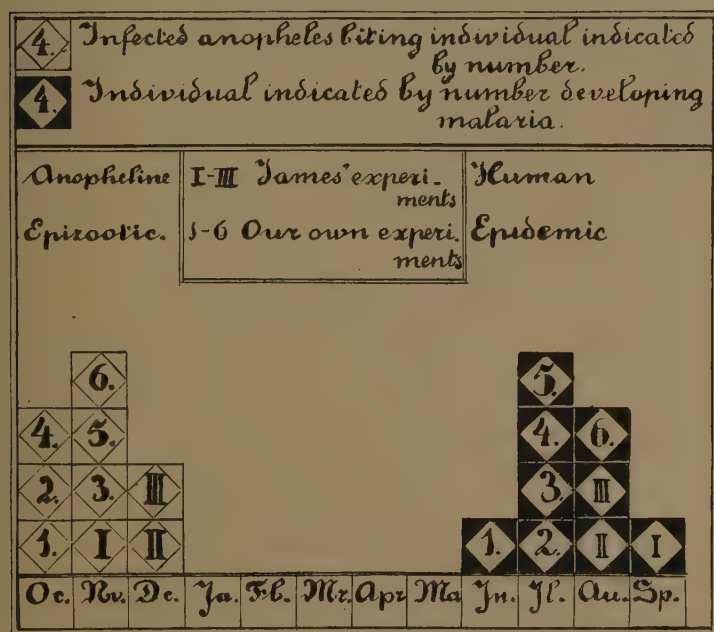 4. Infected anopheles biting individual indicated
by number.
4. Individual indicated by number developing
malaria.
Anopheline
Epizootic.
I-III James' experi-
ments
1-6 Our own experi-
ments
Human
Epidemic
6. 5.
4. 5. 4. 6.
2. 3. III 3. III
1. I II 1. 2. II I
Oc. Nv. Dc. Ja. Fb. Mr. Apr Ma Jn. Jl. Au. Sp.